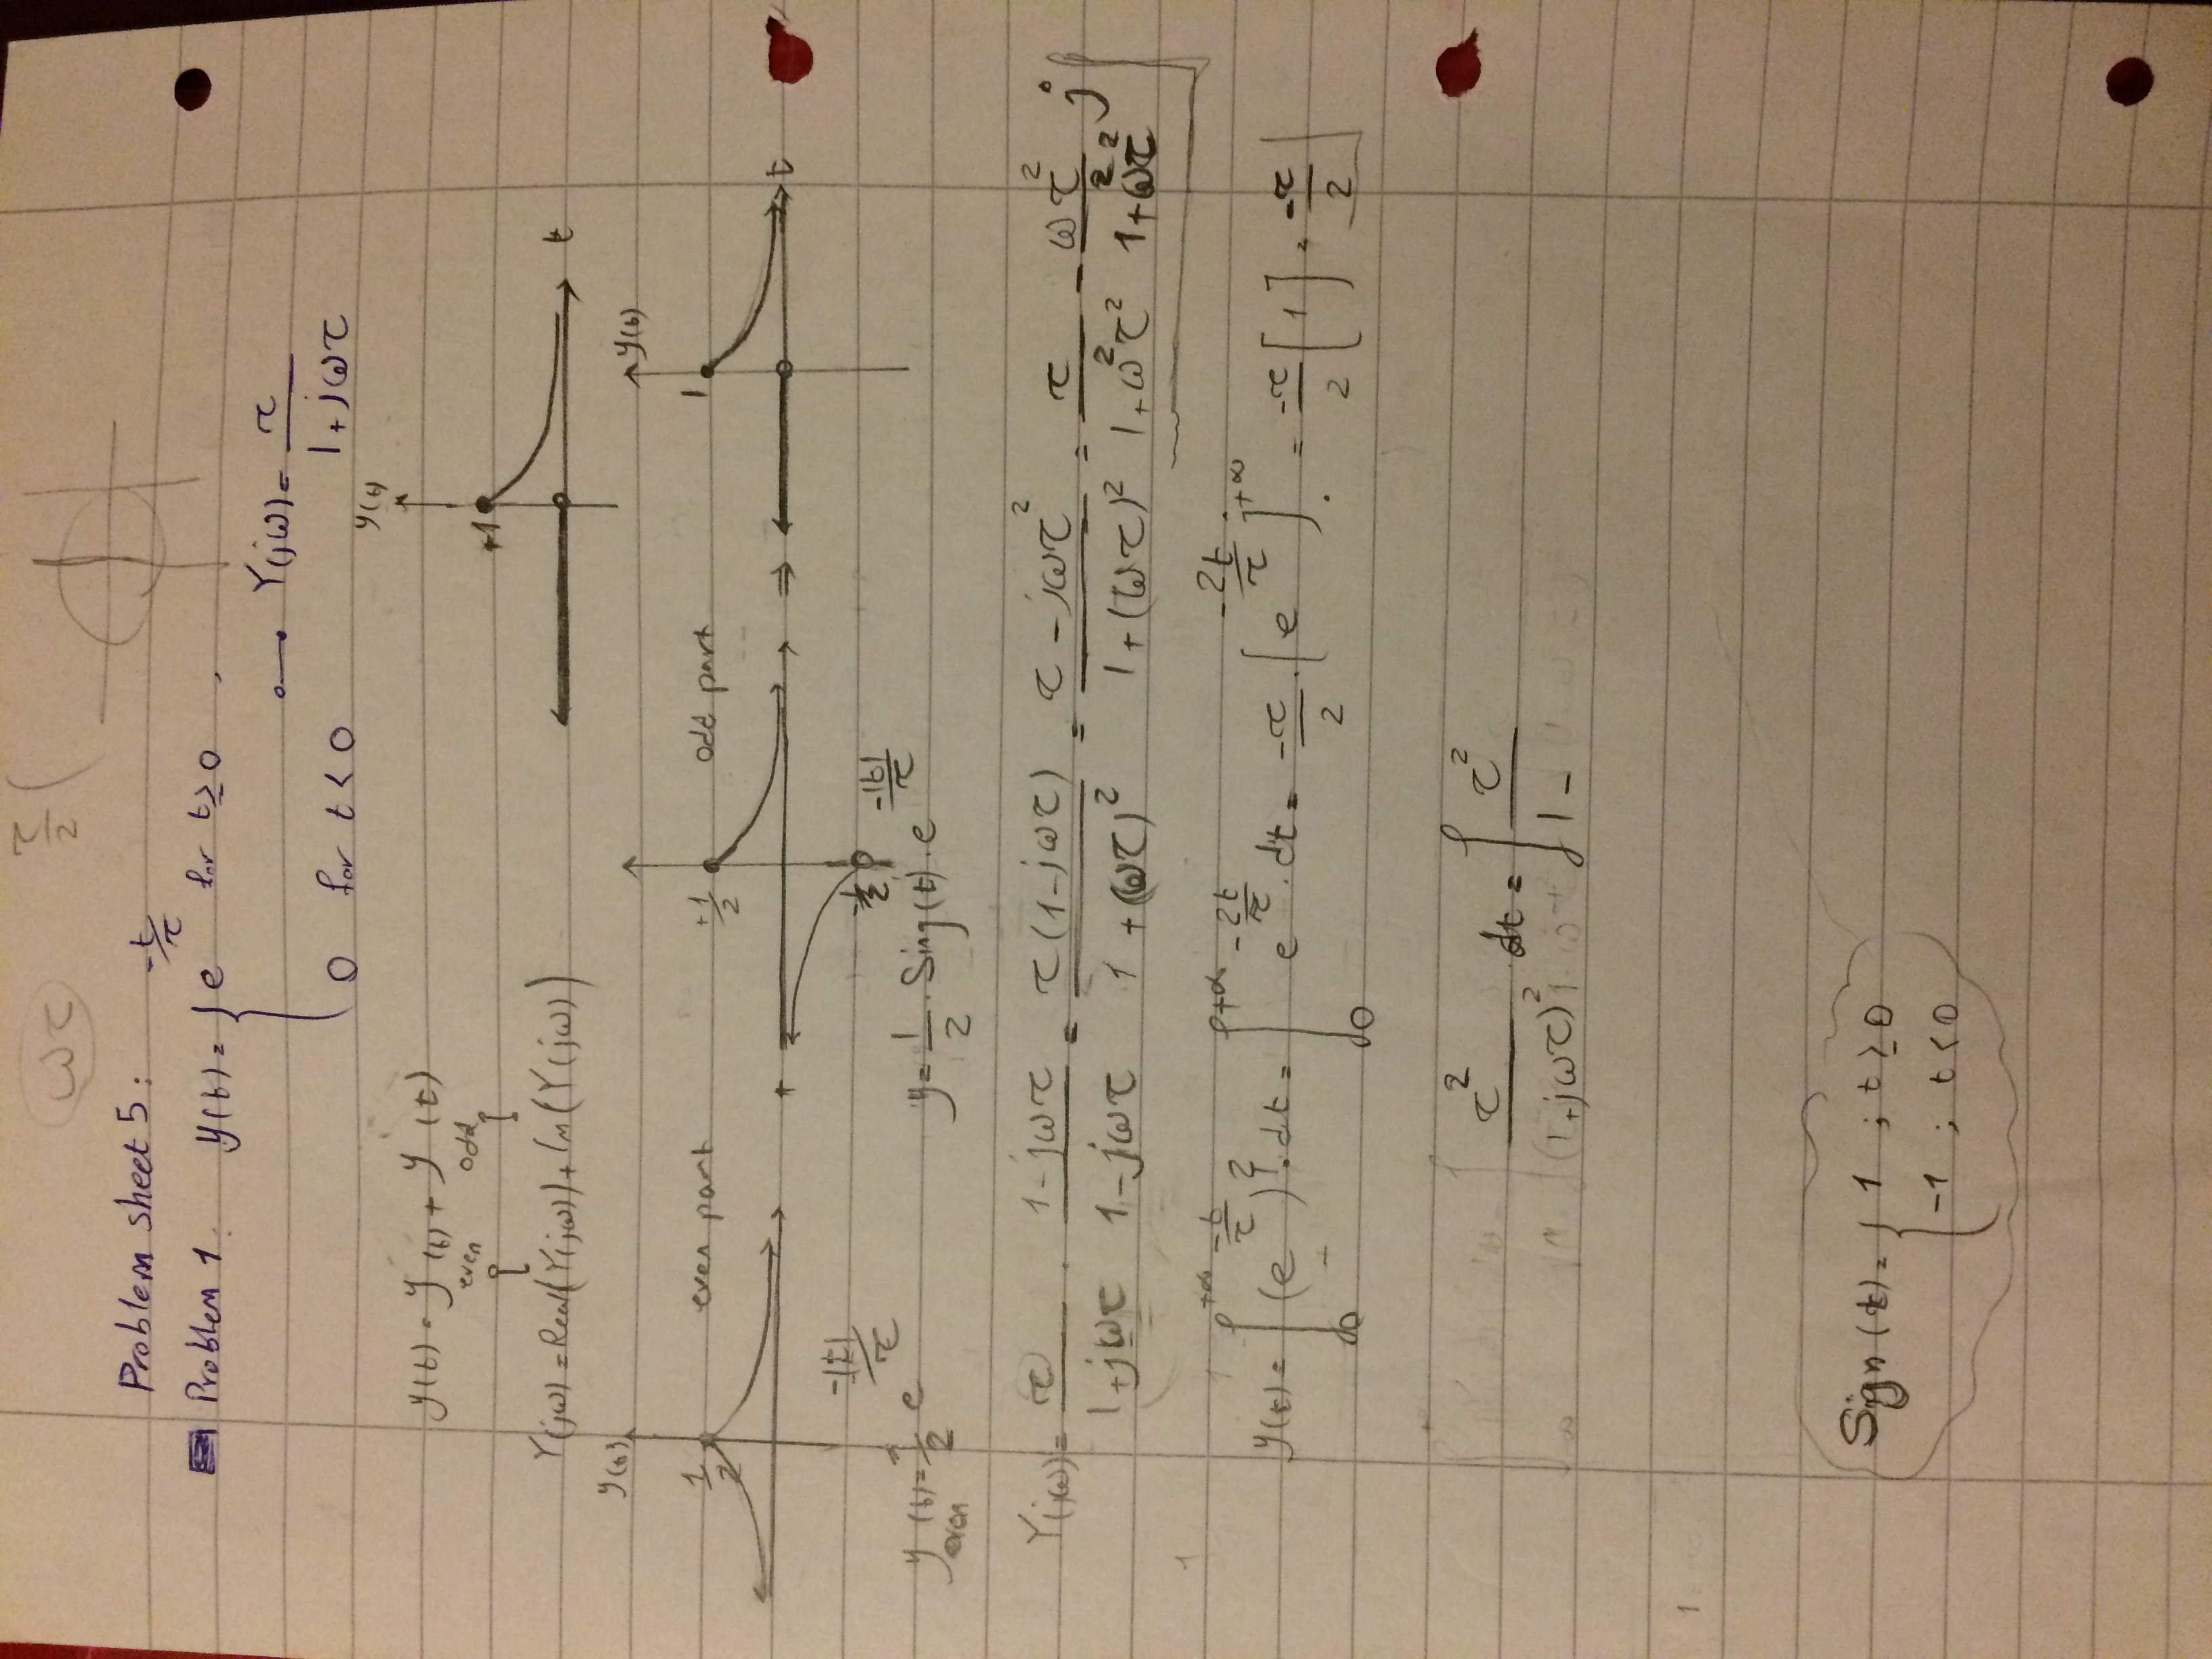 ωτ τ/2 (
Problem sheet 5:
Problem 1. y(t) = { e^(-t/τ) for t ≥ 0 .
Y(jω) = τ / (1+jωτ)
0 for t < 0
y(t)
y(t) = y even (t) + y odd (t)
+1
Y(jω) = Real(Y(jω)) + Im(Y(jω))
t
y(t) y(t)
1/2 even part +1/2 odd part 1
+ ⇒ t
-1/2
y even (t) = 1/2 e^(-|t|/τ) y = 1/2 · Sing(t) · e^(-|t|/τ)
Y(jω) = τ/(1+jωτ) · (1-jωτ)/(1-jωτ) = τ(1-jωτ)/(1+(ωτ)²) = (τ-jωτ²)/(1+(ωτ)²) = τ/(1+ω²τ²) - ωτ²/(1+ω²τ²) j
1
y(t) = ∫₀^(+∞) (e^(-t/τ))² · dt = ∫₀^(+∞) e^(-2t/τ) · dt = -τ/2 · [e^(-2t/τ)]^(+∞) = -τ/2 [1] = -τ/2
τ²/(1+jωτ)² dt = ∫ τ²/(1-
1
Sign(t) = { 1 ; t ≥ 0
-1 ; t < 0